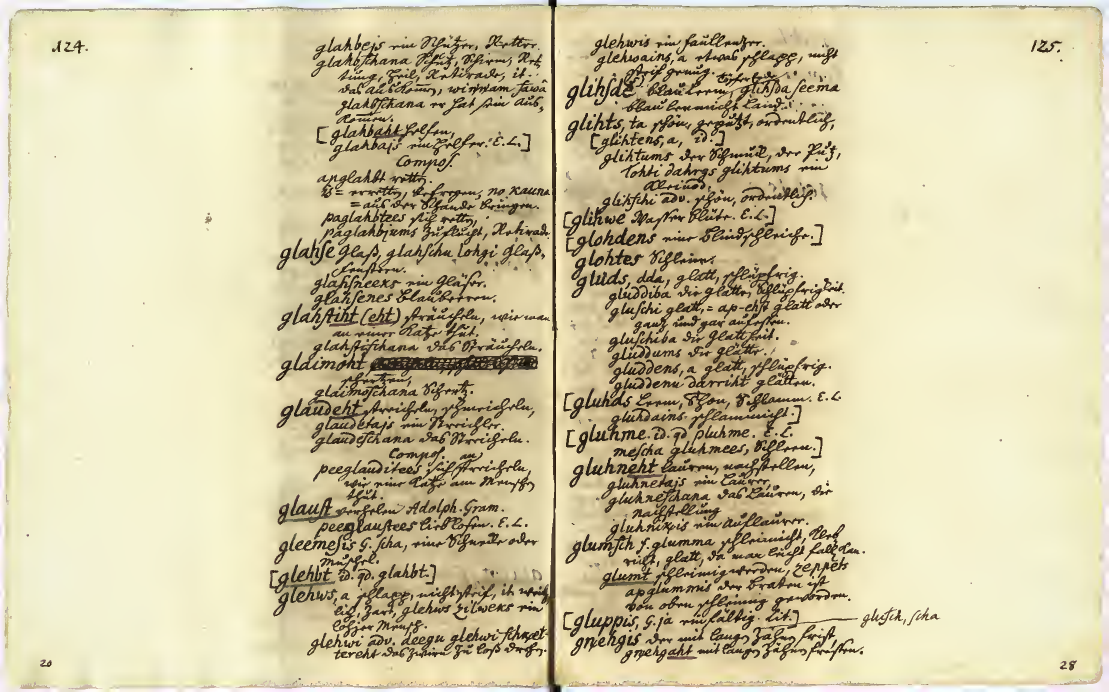 124.
glahbejs ein Schützer, Retter.
glahbschana Schutz, Schirm, Ret-
tung, Heil, Retirade, it.
das Auskom̃en, wiņņam sawa
glahbschana er hat sein Aus-
kom̃en.
[glahbaht helfen,
glahbajs ein Helfer. E. L.]
Compos.
apglahbt retten.
is= erretten, befreyen, no kauna
= aus der Schande bringen.
paglahbtees sich retten,
paglahbjums Zuflucht, Retirade.
glahse Glaß, glahschu lohgi Glaß-
Fenstern.
glahsneeks ein Gläser.
glahsenes Blaubeeren.
glahstiht (eht) sträucheln, wie man
an einer Katze thut.
glahstischana das Sträucheln.
glaimoht
schertzen,
glaimoschana Schertz.
glaudeht streicheln, schmeicheln,
glaudetajs ein Streichler.
glaudeschana das Streicheln.
Compos. an
peeglauditees sich streicheln,
wie eine Katze am Menschen
thut.
glaust verhelen Adolph. Gram.
peeglaustees liebkosen. E. L.
gleemesis G. scha, eine Schnecke oder
Muschel.
[glehbt id. qd. glahbt.]
glehws, a schlapp, nicht steif, it. weich-
lich, zart, glehws zilweks ein
Mensch.
glehwi adv. deegu glehwi
tereht das Zwirn zu loß drehen.
20
125.
glehwis ein Faullentzer.
glehwains, a etwas schlapp, nicht
steif genug.
glihsde blau Leem, Töpfer Erde, glihsda seema
blau leemicht Land.
glihts, ta schön, geputzt, ordentlich,
[glihtens, a, id.]
glihtums der Schmuck, der Putz,
lohti dahrgs glihtums ein
Kleinod.
glihschi adv. schön, ordentlich.
[glihwe Wasser Blüte. E. L.]
[glohdens eine Blindschleiche.]
glohtes Schleim.
gluds, dda, glatt, schlüpfrig.
gluddiba die Glätte, Schlüpfrigkeit.
gluschi glatt, = ap-ehst glatt oder
gantz und gar aufessen.
gluschiba die Glattheit.
gluddums die Glätte.
gluddens, a glatt, schlüpfrig.
gluddenu darriht glätten.
[gluhds Leem, Thon, Schlamm. E. L.
gluhdains schlammicht.]
[gluhme. id. qd pluhme. E. L.
mescha gluhmees, Schleen.]
gluhneht lauren, nachstellen,
gluhnetajs ein Laurer,
gluhneschana das Lauren, die
Nachstellung
gluhnikis ein Auflaurer.
glumsch f. glumma schleimicht, kleb-
richt, glatt, da man leicht fallen kan.
glumt schleimig werden, zeppets
apglummis der Braten ist
von oben schleimig geworden.
[gluppis, G. ja einfältig. Lit.] glusch, scha
gnehgis der mit langen Zähnen frist,
gnehgaht mit langen Zähnen fressen.
28